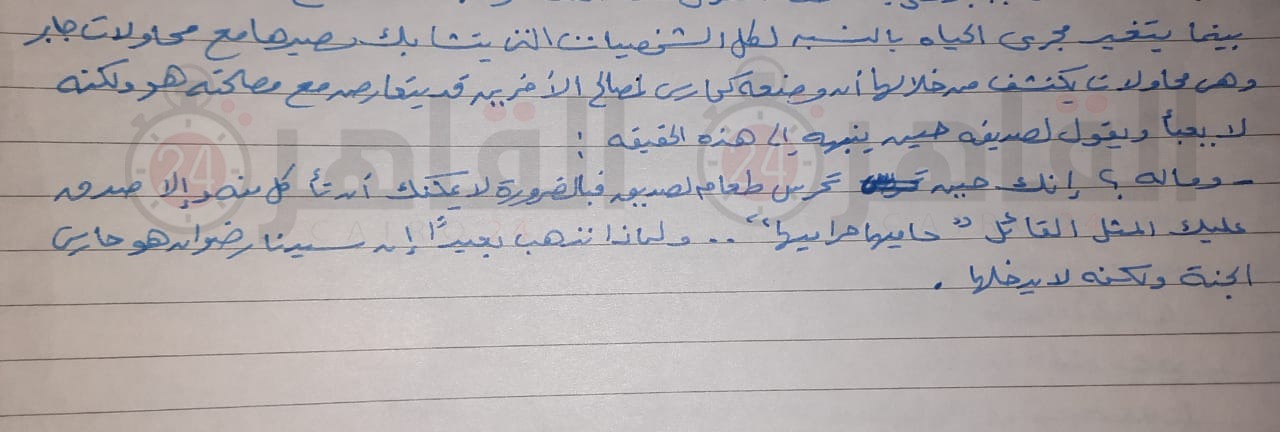 بينما يتغير مجرى الحياه بالنسبه لكل الشخصيات التى يتشابك مصيرها مع محاولات جابر
وهى محاولات يكتشف من خلالها أن وضعه كحارس لمصالح الأخرين قد يتعارض مع مصلحته هو ولكنه
لا يعبأ ويقول لصديقه حين ينبهه إلى هذه الحقيقه :
- وماله ؟ إنك حين تحرس طعام لصديق فبالضرورة لا يمكنك أن تأكل منه وإلا صدق
عليك المثل القائل "حاميها حراميها" .. ولماذا نذهب بعيدًا إن سيدنا رضوان هو حارس
الجنة ولكنه لا يدخلها .
القاهرة 24